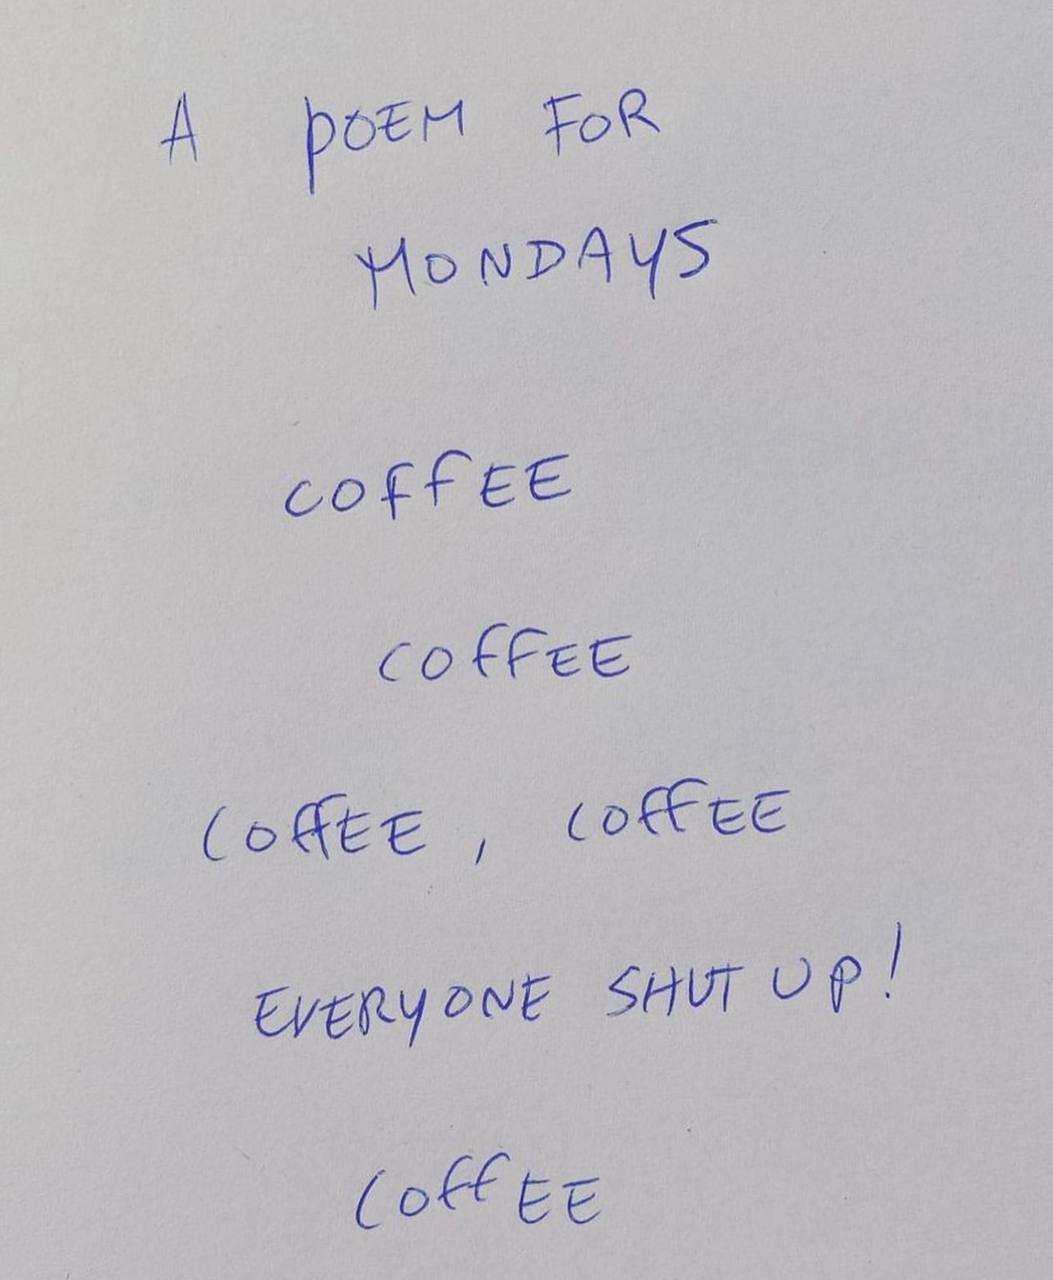 A POEM FOR
MONDAYS
COFFEE
COFFEE
COFFEE, COFFEE
EVERYONE SHUT UP!
COFFEE